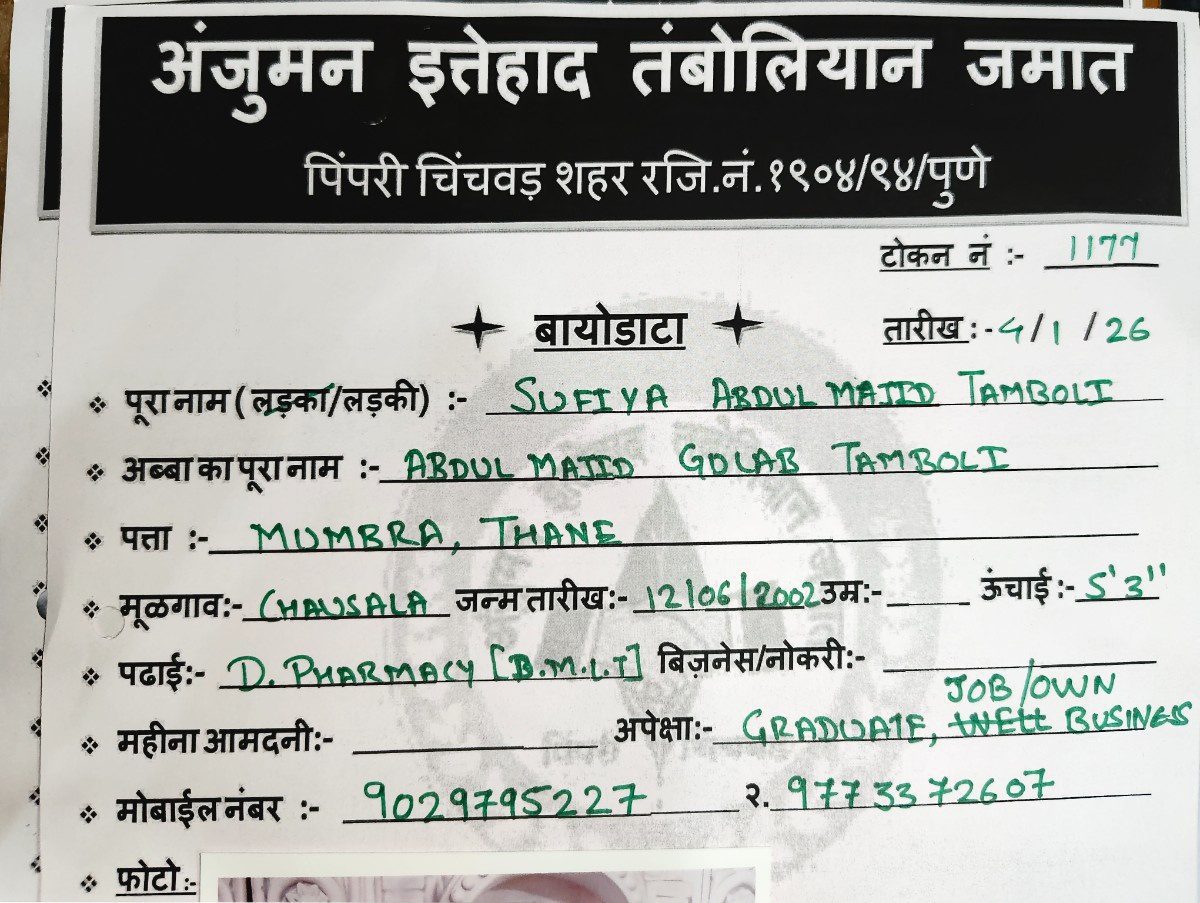 अंजुमन इत्तेहाद तंबोलियान जमात
पिंपरी चिंचवड़ शहर रजि.नं.१९०४/९४/पुणे
टोकन नं :- 1177
बायोडाटा
तारीख :- 4/1/26
पूरा नाम ( लड़का/लड़की) :- SUFIYA ABDUL MAJID TAMBOLI
अब्बा का पूरा नाम :- ABDUL MAJID GOLAB TAMBOLI
पत्ता :- MUMBRA, THANE
मूळगाव:- CHAUSALA जन्म तारीख:- 12/06/2002 उम्र:- ऊंचाई:- 5'3"
पढाई:- D. PHARMACY [B.M.L.T] बिज़नेस/नोकरी:-
महीना आमदनी:- अपेक्षा:- GRADUATE, JOB/OWN WELL BUSINESS
मोबाईल नंबर :- 9029795227 २. 9773372607
फोटो:-